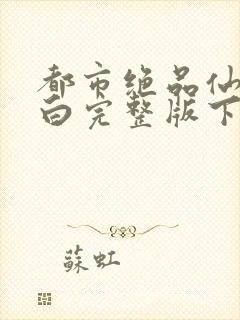 都市绝品仙
白完整版下
蘇虹